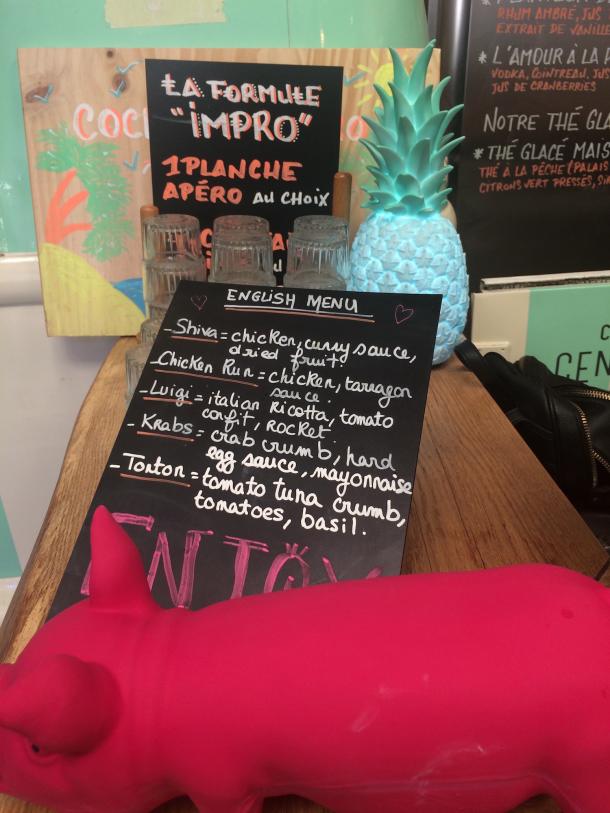 LA FORMULE
"IMPRO"
1 PLANCHE
APÉRO AU CHOIX
RHUM AMBRÉ, JUS
EXTRAIT DE VANILLE
* L'AMOUR À LA
VODKA, COINTREAU, JUS
JUS DE CRANBERRIES
NOTRE THÉ GLA
* THÉ GLACÉ MAIS
THÉ À LA PÊCHE (PALAIS
CITRONS VERT PRESSÉS,
ENGLISH MENU
- Shiva = chicken, curry sauce,
dried fruit.
- Chicken Run = chicken, tarragon
sauce.
- Luigi = italian Ricotta, tomato
confit, rocket
- Krabs = crab crumb, hard
egg sauce, mayonnaise
- Tonton = tomato tuna crumb,
tomatoes, basil.
ENJOY
CEN